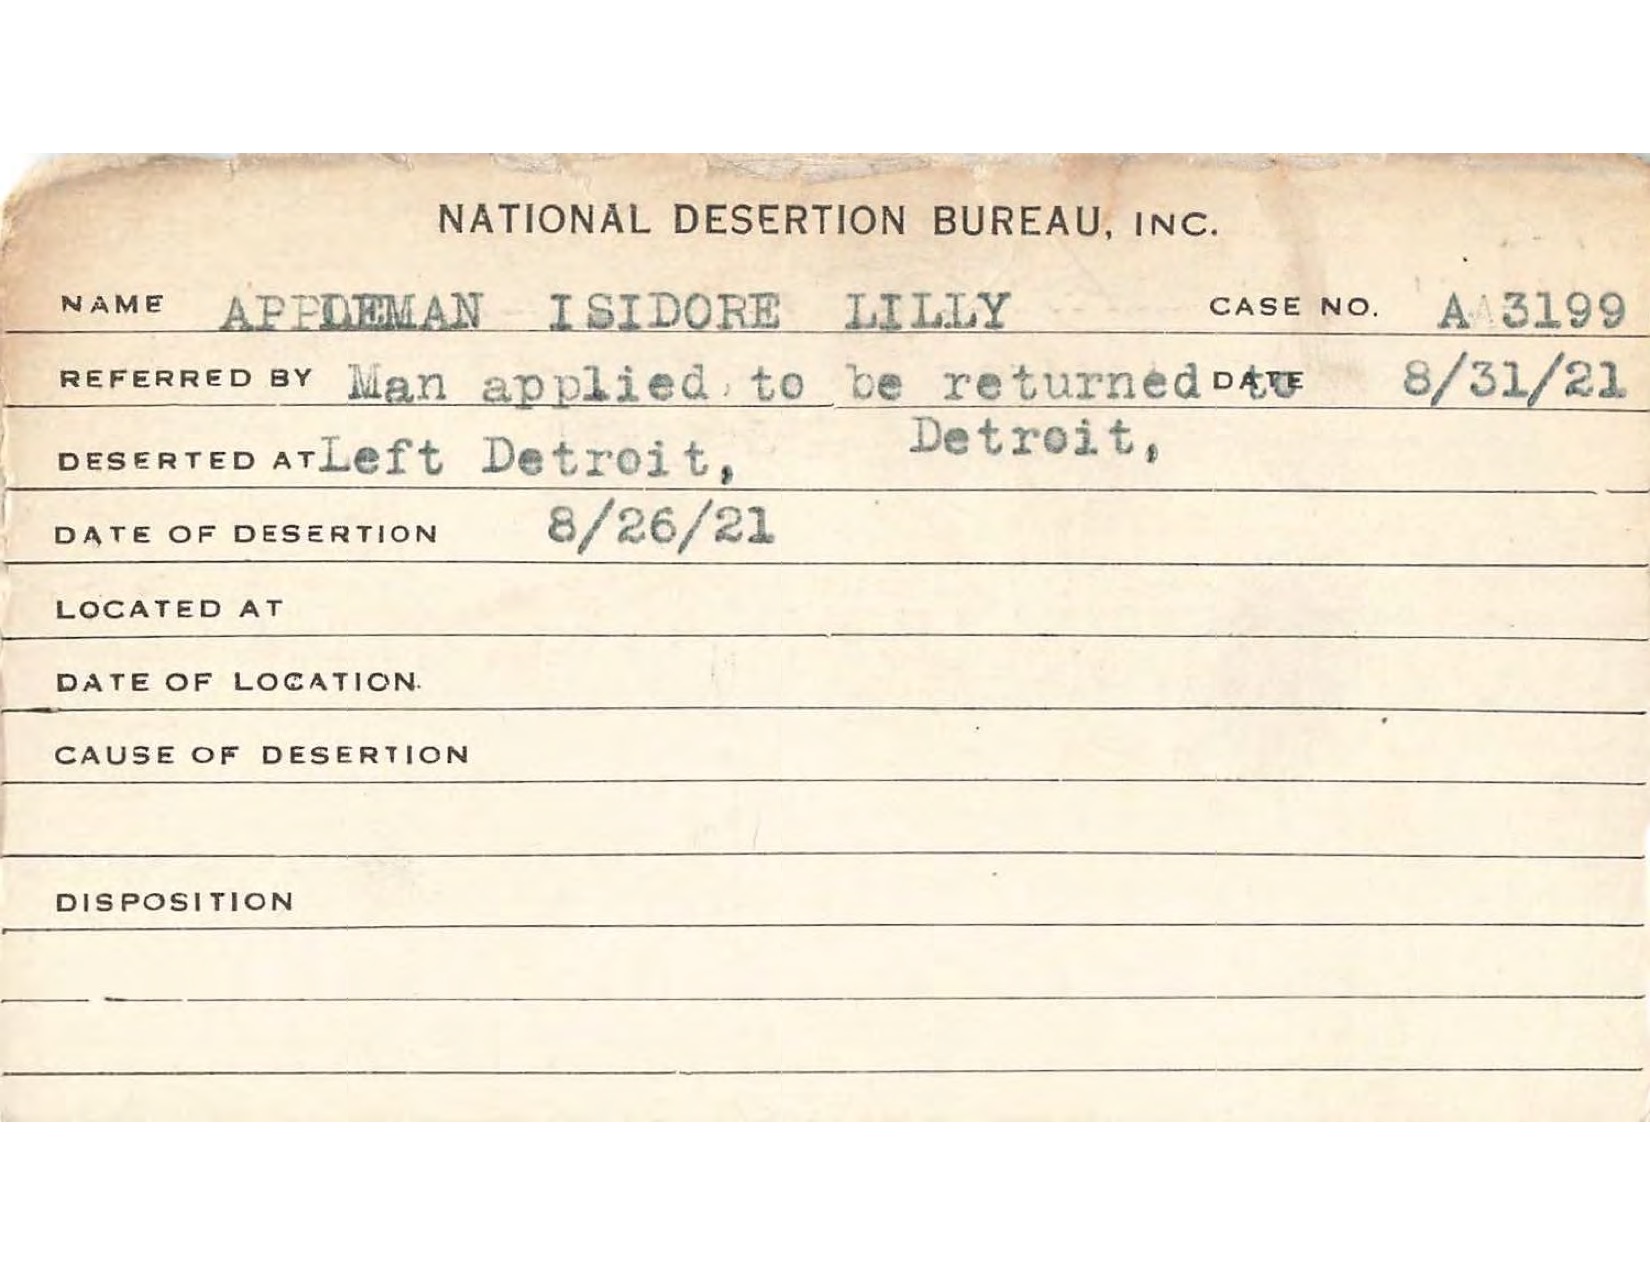 NATIONAL DESERTION BUREAU, INC.
NAME APPLEMAN ISIDORE LILLY CASE NO. A 3199
REFERRED BY Man applied to be returned to DATE 8/31/21
Detroit,
DESERTED AT Left Detroit,
DATE OF DESERTION 8/26/21
LOCATED AT
DATE OF LOCATION.
CAUSE OF DESERTION
DISPOSITION